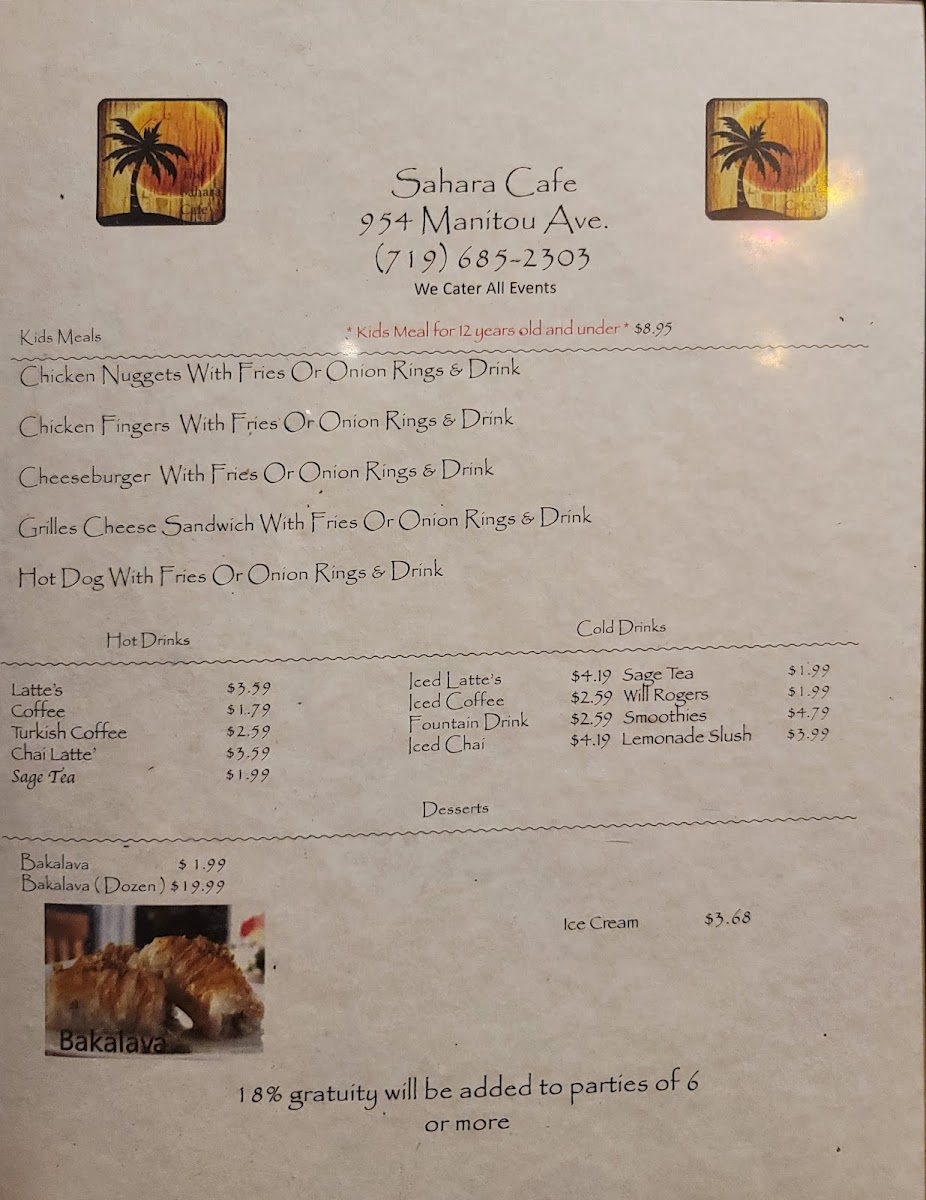 The
Sahara
Cafe
The
Sahara
Cafe
Sahara Cafe
954 Manitou Ave.
(719) 685-2303
We Cater All Events
Kids Meals * Kids Meal for 12 years old and under * $8.95
Chicken Nuggets With Fries Or Onion Rings & Drink
Chicken Fingers With Fries Or Onion Rings & Drink
Cheeseburger With Fries Or Onion Rings & Drink
Grilles Cheese Sandwich With Fries Or Onion Rings & Drink
Hot Dog With Fries Or Onion Rings & Drink
Hot Drinks
Latte's $3.59
Coffee $1.79
Turkish Coffee $2.59
Chai Latte' $3.59
Sage Tea $1.99
Cold Drinks
Iced Latte's $4.19 Sage Tea $1.99
Iced Coffee $2.59 Will Rogers $1.99
Fountain Drink $2.59 Smoothies $4.79
Iced Chai $4.19 Lemonade Slush $3.99
Desserts
Bakalava $ 1.99
Bakalava ( Dozen ) $19.99
Ice Cream $3.68
Bakalava
18% gratuity will be added to parties of 6
or more